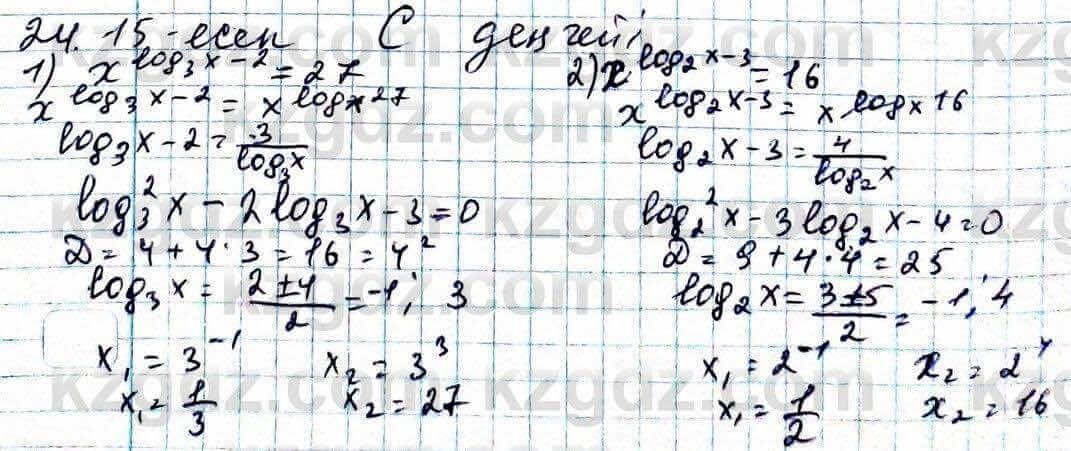 24.15-есеп C деңгейі
1) x^(log₃x−2) = 27
x^(log₃x−2) = x^(logₓ27)
log₃x − 2 = 3/log₃x
log₃²x − 2log₃x − 3 = 0
D = 4 + 4·3 = 16 = 4²
log₃x = (2±4)/2 = −1; 3
x₁ = 3⁻¹ x₂ = 3³
x₁ = 1/3 x₂ = 27
2) x^(log₂x−3) = 16
x^(log₂x−3) = x^(logₓ16)
log₂x − 3 = 4/log₂x
log₂²x − 3log₂x − 4 = 0
D = 9 + 4·4 = 25
log₂x = (3±5)/2 = −1; 4
x₁ = 2⁻¹ x₂ = 2⁴
x₁ = 1/2 x₂ = 16
kzgdz.com